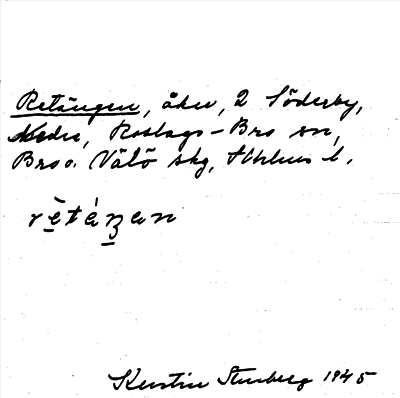 Retängen, åker, 2 Söderby,
Nedre, Roslags-Bro sn,
Bro o. Vätö skg, Sthlms l.
rètáŋen
Kerstin Stenberg 1945